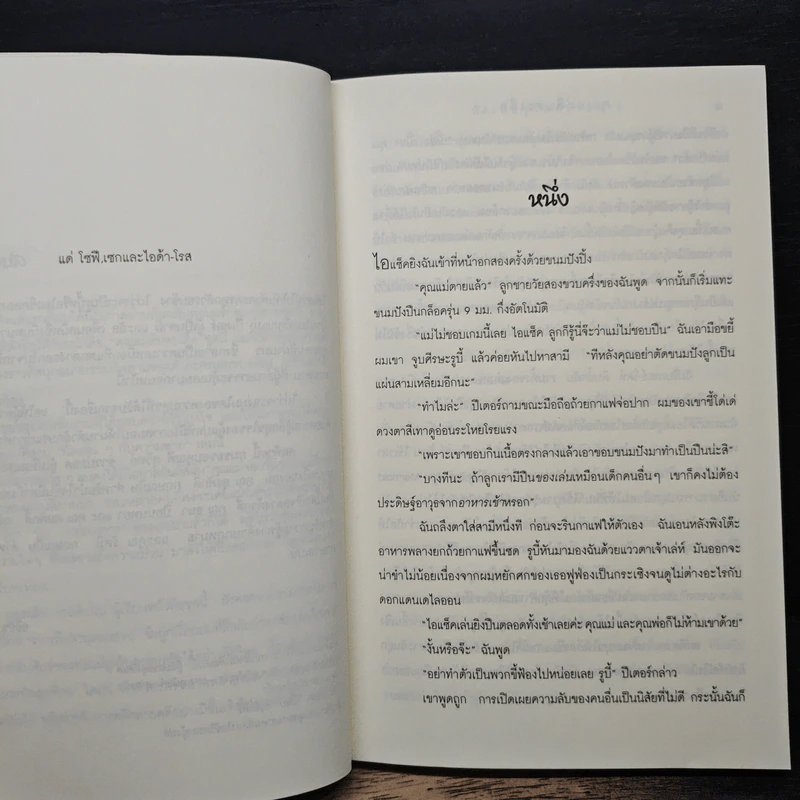 แด่ โซฟี,เซกและไอด้า-โรส
หนึ่ง
ไอแซ็คยิงฉันเข้าที่หน้าอกสองครั้งด้วยขนมปังปิ้ง
"คุณแม่ตายแล้ว" ลูกชายวัยสองขวบครึ่งของฉันพูด จากนั้นก็เริ่มแทะ
ขนมปังปืนกล็อครุ่น 9 มม. กึ่งอัตโนมัติ
"แม่ไม่ชอบเกมนี้เลย ไอแซ็ค ลูกก็รู้นี่จ๊ะว่าแม่ไม่ชอบปืน" ฉันเอามือขยี้
ผมเขา จูบศีรษะรูบี้ แล้วค่อยหันไปหาสามี "ทีหลังคุณอย่าตัดขนมปังลูกเป็น
แผ่นสามเหลี่ยมอีกนะ"
"ทำไมล่ะ" ปีเตอร์ถามขณะมือถือถ้วยกาแฟจ่อปาก ผมของเขาชี้โด่เด่
ดวงตาสีเทาดูอ่อนระโหยโรยแรง
"เพราะเขาชอบกินเนื้อตรงกลางแล้วเอาขอบขนมปังมาทำเป็นปืนน่ะสิ"
"บางทีนะ ถ้าลูกเรามีปืนของเล่นเหมือนเด็กคนอื่นๆ เขาก็คงไม่ต้อง
ประดิษฐ์อาวุธจากอาหารเช้าหรอก"
ฉันถลึงตาใส่สามีหนึ่งที ก่อนจะรินกาแฟให้ตัวเอง ฉันเอนหลังพิงโต๊ะ
อาหารพลางยกถ้วยกาแฟขึ้นซด รูบี้หันมามองฉันด้วยแววตาเจ้าเล่ห์ มันออกจะ
น่าขำไม่น้อยเนื่องจากผมหยักศกของเธอฟูฟ่องเป็นกระเซิงจนดูไม่ต่างอะไรกับ
ดอกแดนเดไลออน
"ไอแซ็คเล่นยิงปืนตลอดทั้งเช้าเลยค่ะ คุณแม่ และคุณพ่อก็ไม่ห้ามเขาด้วย"
"งั้นหรือจ๊ะ" ฉันพูด
"อย่าทำตัวเป็นพวกขี้ฟ้องไปหน่อยเลย รูบี้" ปีเตอร์กล่าว
เขาพูดถูก การเปิดเผยความลับของคนอื่นเป็นนิสัยที่ไม่ดี กระนั้นฉันก็